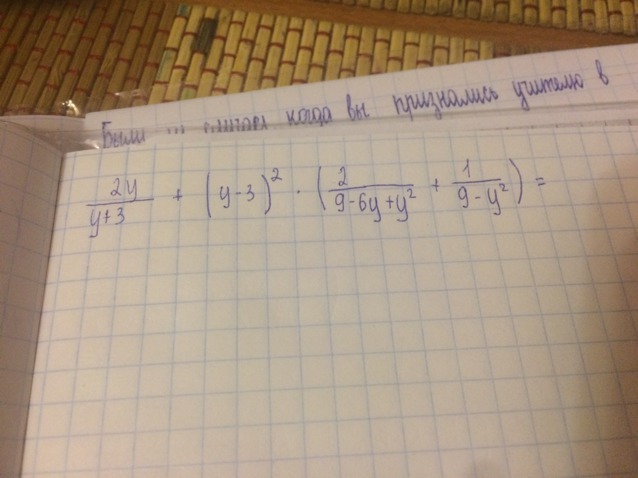 Были когда вы признались учителю в
2y/(y+3) + (y-3)² · (2/(9-6y+y²) + 1/(9-y²)) =